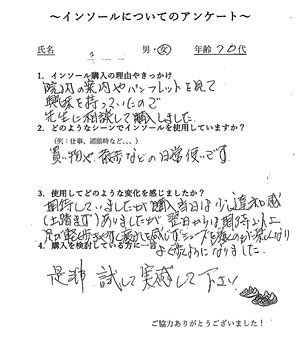 ～インソールについてのアンケート～
氏名 男・女 年齢 70代
1. インソール購入の理由やきっかけ
院内の案内やパンフレットを見て
興味を持っていたので
先生に相談して購入しました.
2. どのようなシーンでインソールを使用していますか？
(例：仕事、週末時など、、、)
買い物や散歩などの日常使いです.
3. 使用してどのような変化を感じましたか？
期待していましたが購入当日は少し違和感
(土踏まず)ありましたが翌日からは期待以上
足が軽く歩きやすく
よく歩くようになりました.
4. 購入を検討している方に一言
是非試して実感して下さい
ご協力ありがとうございました！